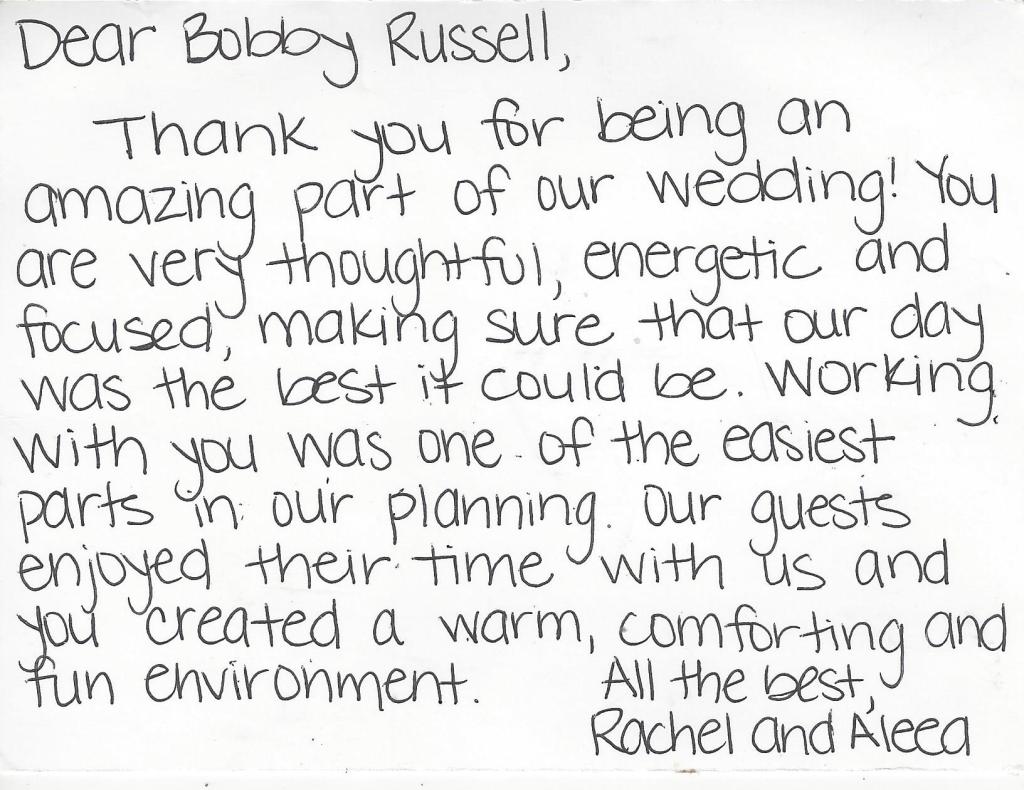 Dear Bobby Russell,
Thank you for being an
amazing part of our wedding! You
are very thoughtful, energetic and
focused, making sure that our day
was the best it could be. Working
with you was one of the easiest
parts in our planning. Our guests
enjoyed their time with us and
you created a warm, comforting and
fun environment. All the best,
Rachel and Aleea